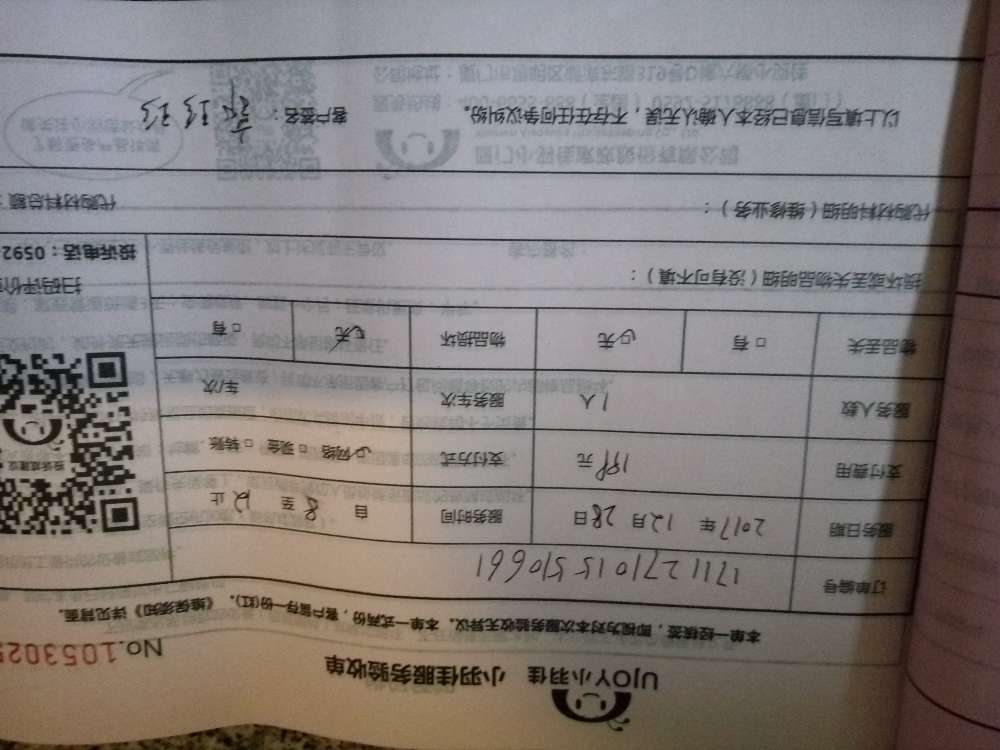 UJOY小羽佳 小羽佳服务验收单
No.1053029
本单一经核签，即视为对本次服务验收无异议。本单一式两份，客户留存一份(红)。《维保须知》详见背面。
订单编号 171127101551066​1
服务日期 2017年 12月 28日 服务时间 自 8 至 12 止
支付费用 198元 支付方式 ☑网络 □现金 □转账
服务人数 1人 服务车次 车/次
物品丢失 □有 ☑无 物品损坏 ☑无 □有
投诉或建议
扫码评价
损坏或丢失物品明细（没有可不填）：
投诉电话：0592
代购材料明细（维修业务）：
代购材料总额：
以上填写信息已经本人确认无误，不存在任何争议纠纷。
客户签名：